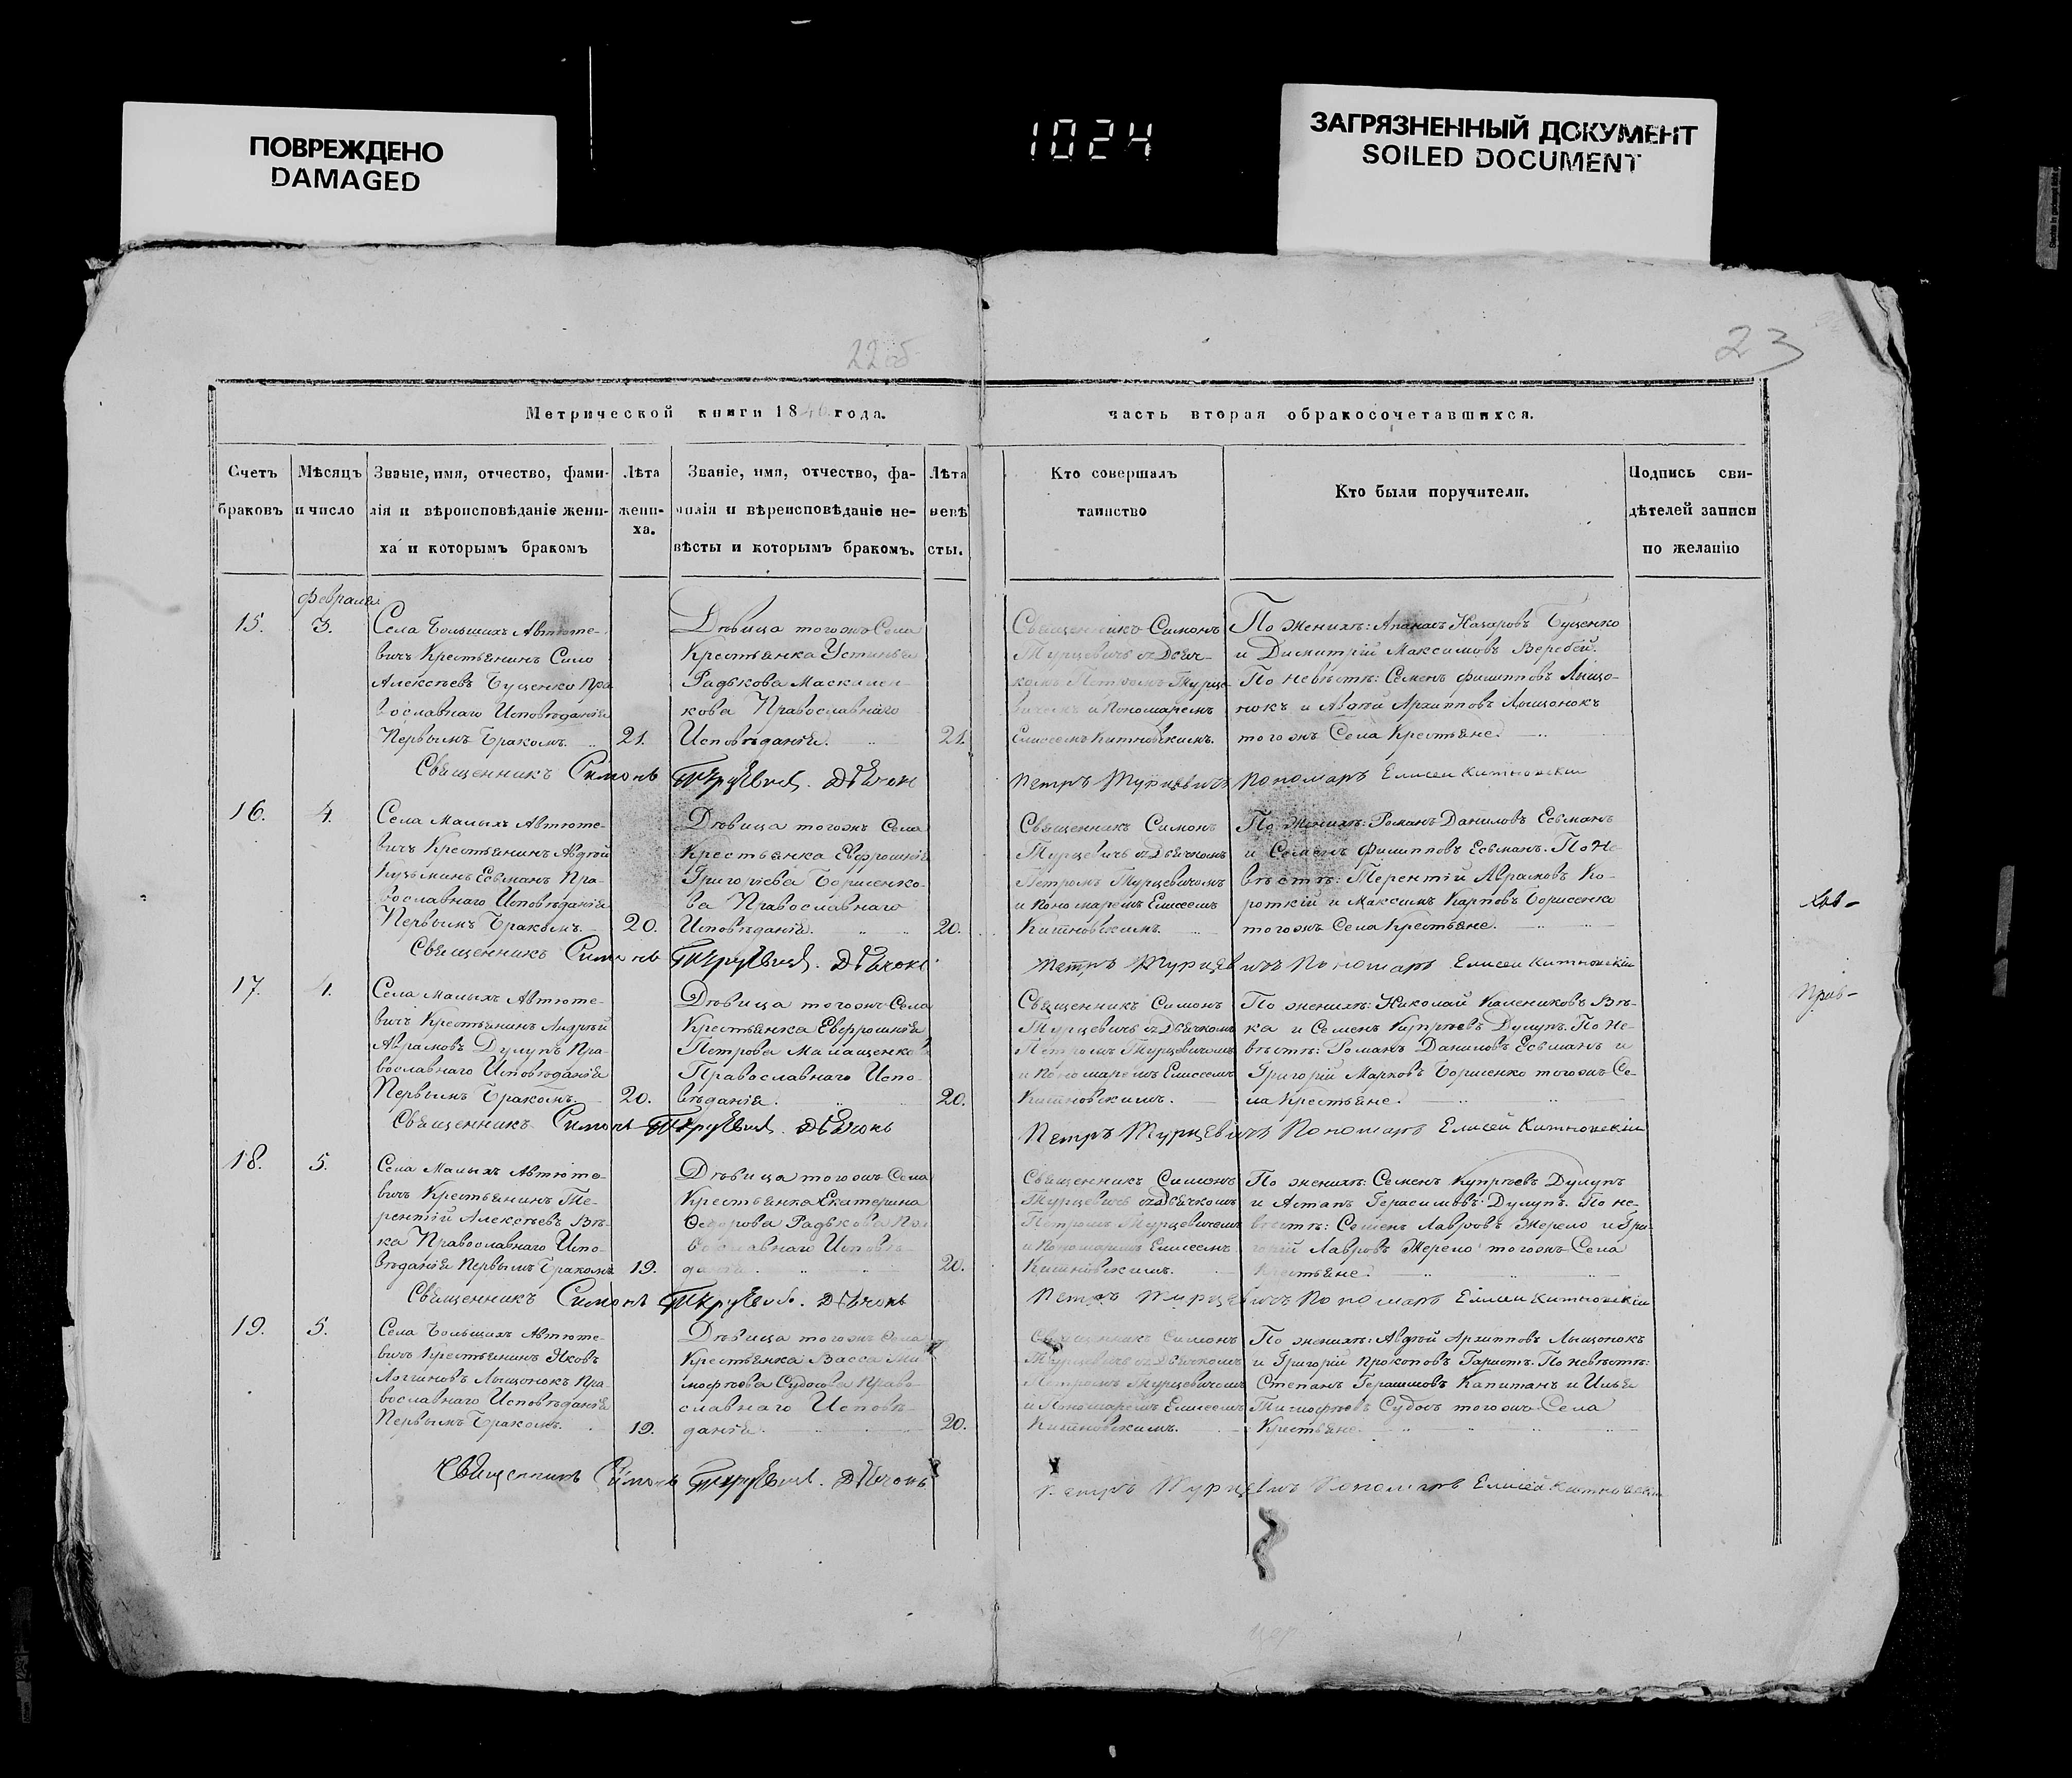 ПОВРЕЖДЕНО
DAMAGED
1024
ЗАГРЯЗНЕННЫЙ ДОКУМЕНТ
SOILED DOCUMENT
22об
23
Метрической книги 1846 года.
часть вторая обракосочетавшихся.
Счетъ
браковъ
Мѣсяцъ
и число
Званіе, имя, отчество, фами-
лія и вѣроисповѣданіе жени-
ха и которымъ бракомъ
Лѣта
жени-
ха.
Званіе, имя, отчество, фа-
милія и вѣреисповѣданіе не-
вѣсты и которымъ бракомъ.
Лѣта
невѣ
сты.
Кто совершалъ
таинство
Кто были поручители.
Подпись сви-
дѣтелей записи
по желанію
Февраля
15.
3.
Села Большихъ Автюте-
вичъ Крестьянинъ Сило
Алексѣевъ Буценко Пра
вославнаго Исповѣданія
Первымъ Бракомъ.
21.
Дѣвица тогожъ Села
Крестьянка Устинья
Радькова
кова Православнаго
Исповѣданія.
21.
Священникъ Симонъ
Турцевичъ съ Дьяч-
комъ Петромъ Турце-
вичемъ и Пономаремъ
Елисеемъ Китновскимъ.
По женихѣ: Апанасъ Назаровъ Буценко
и Димитрій Максимовъ Веребей.
По невѣстѣ: Семенъ Филиповъ Лыщо-
нокъ и Авдѣй Архиповъ Лыщонокъ
тогожъ Села Крестьяне.
Священникъ Симонъ Турцевичъ. Дьячокъ
Петръ Турцевичъ Пономарь Елисей Китновскій
16.
4.
Села Малыхъ Автюте-
вичъ Крестьянинъ Авдѣй
Кузьминъ Есьманъ Пра-
вославнаго Исповѣданія
Первымъ Бракомъ.
20.
Дѣвица тогожъ Села
Крестьянка Евфросинія
Григорьева Борисенко-
ва Православнаго
Исповѣданія.
20.
Священникъ Симонъ
Турцевичъ съ Дьячкомъ
Петромъ Турцевичомъ
и Пономаремъ Елисеемъ
Китновскимъ.
По женихѣ: Романъ Даниловъ Есьманъ
и Семенъ Филиповъ Есьманъ. По не-
вѣстѣ: Терентій Абрамовъ Ко-
роткій и Максимъ Карповъ Борисенко
тогожъ Села Крестьяне.
Священникъ Симонъ Турцевичъ. Дьячокъ
Петръ Турцевичъ Пономарь Елисей Китновскій
17.
4.
Села Малыхъ Автюте-
вичъ Крестьянинъ Андрѣй
Абрамовъ Дулупъ Пра-
вославнаго Исповѣданія
Первымъ Бракомъ.
20.
Дѣвица тогожъ Села
Крестьянка Евфросинія
Петрова Малащенкова
Православнаго Испо-
вѣданія.
20.
Священникъ Симонъ
Турцевичъ съ Дьячкомъ
Петромъ Турцевичомъ
и Пономаремъ Елисеемъ
Китновскимъ.
По женихѣ: Николай Калениковъ Вѣ-
ка и Семенъ Купрѣевъ Дулупъ. По не-
вѣстѣ: Романъ Даниловъ Есьманъ и
Григорій Марковъ Борисенко тогожъ Се-
ла Крестьяне.
Священникъ Симонъ Турцевичъ. Дьячокъ
Петръ Турцевичъ Пономарь Елисей Китновскій
18.
5.
Села Малыхъ Автюте-
вичъ Крестьянинъ Те-
рентій Алексѣевъ Вѣ-
ка Православнаго Испо-
вѣданія Первымъ Бракомъ
19.
Дѣвица тогожъ Села
Крестьянка Екатерина
Федорова Радькова Пра-
вославнаго Исповѣ-
данія.
20.
Священникъ Симонъ
Турцевичъ съ Дьячкомъ
Петромъ Турцевичемъ
и Пономаремъ Елисеемъ
Китновскимъ.
По женихѣ: Семенъ Купрѣевъ Дулупъ
и Астапъ Герасимовъ Дулупъ. По не-
вѣстѣ: Семенъ Лавровъ Жерело и Гри-
горій Лавровъ Жерело тогожъ Села
Крестьяне.
Священникъ Симонъ Турцевичъ. Дьячокъ
Петръ Турцевичъ Пономарь Елисей Китновскій
19.
5.
Села Большихъ Автюте-
вичъ Крестьянинъ Яковъ
Логгиновъ Лыщонокъ Пра
вославнаго Исповѣданія
Первымъ Бракомъ.
19.
Дѣвица тогожъ Села
Крестьянка Васса Ти-
мофѣева Судосва Право-
славнаго Исповѣ-
данія.
20.
Священникъ Симонъ
Турцевичъ съ Дьячкомъ
Петромъ Турцевичомъ
и Пономаремъ Елисеемъ
Китновскимъ.
По женихѣ: Авдѣй Архиповъ Лыщонокъ
и Григорій Прокоповъ Гаристъ. По невѣстѣ:
Степанъ Герасимовъ Капитанъ и Илья
Тимофѣевъ Судосъ тогожъ Села
Крестьяне.
Священникъ Симонъ Турцевичъ. Дьячокъ
Петръ Турцевичъ Пономарь Елисей Китновскій